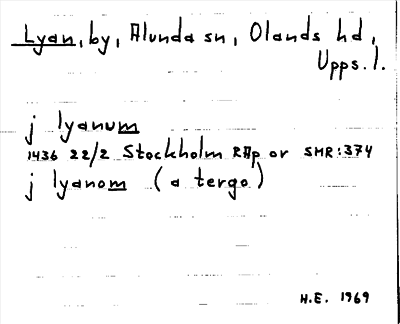 Lyan, by, Alunda sn, Olands hd,
Upps. l.
j lyanum
1436 22/2 Stockholm RAp or SMR:374
j lyanom (a tergo)
H.E. 1969